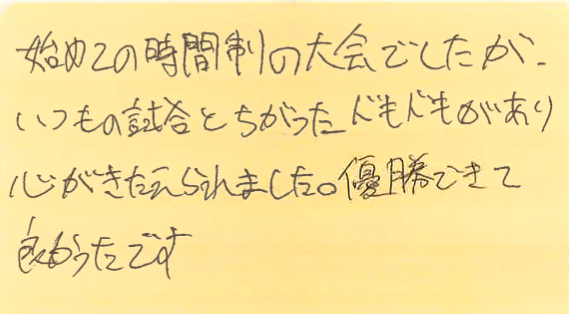 始めての時間制の大会でしたが、
いつもの試合とちがったドキドキがあり
心がきたえられました。優勝できて
良かったです